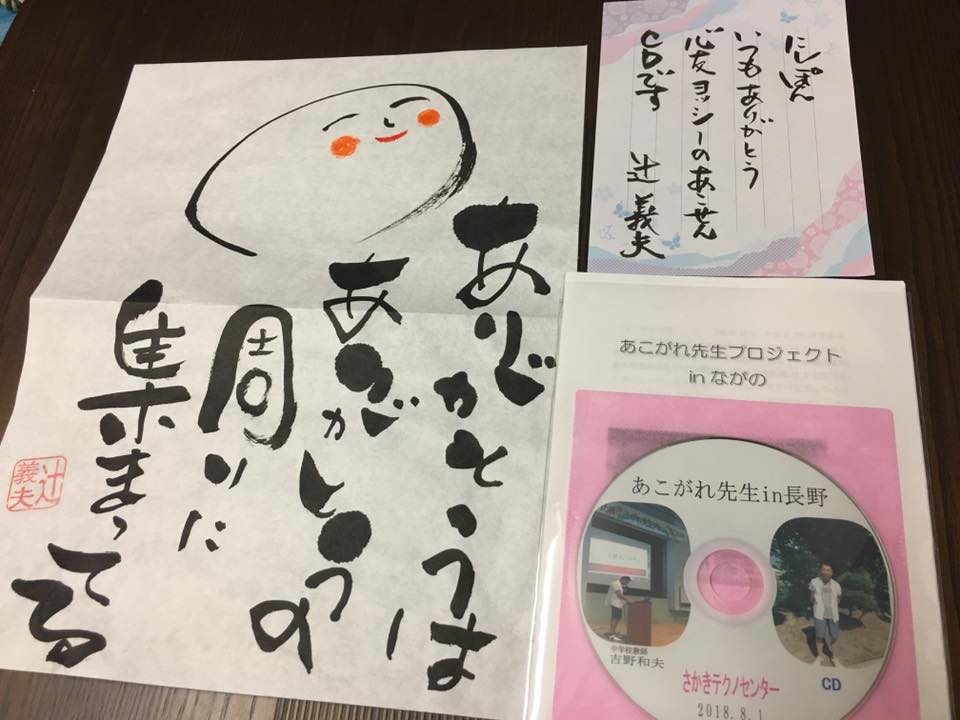 ありがとうは
ありがとうの
周りに
集まってる
辻義夫
にしぽん
いつもありがとう
心友ヨッシーのあこせん
CDです 辻義夫
あこがれ先生プロジェクト
in ながの
あこがれ先生in長野
中学校教師
吉野和夫
さかきテクノセンター
CD
2018.8.1